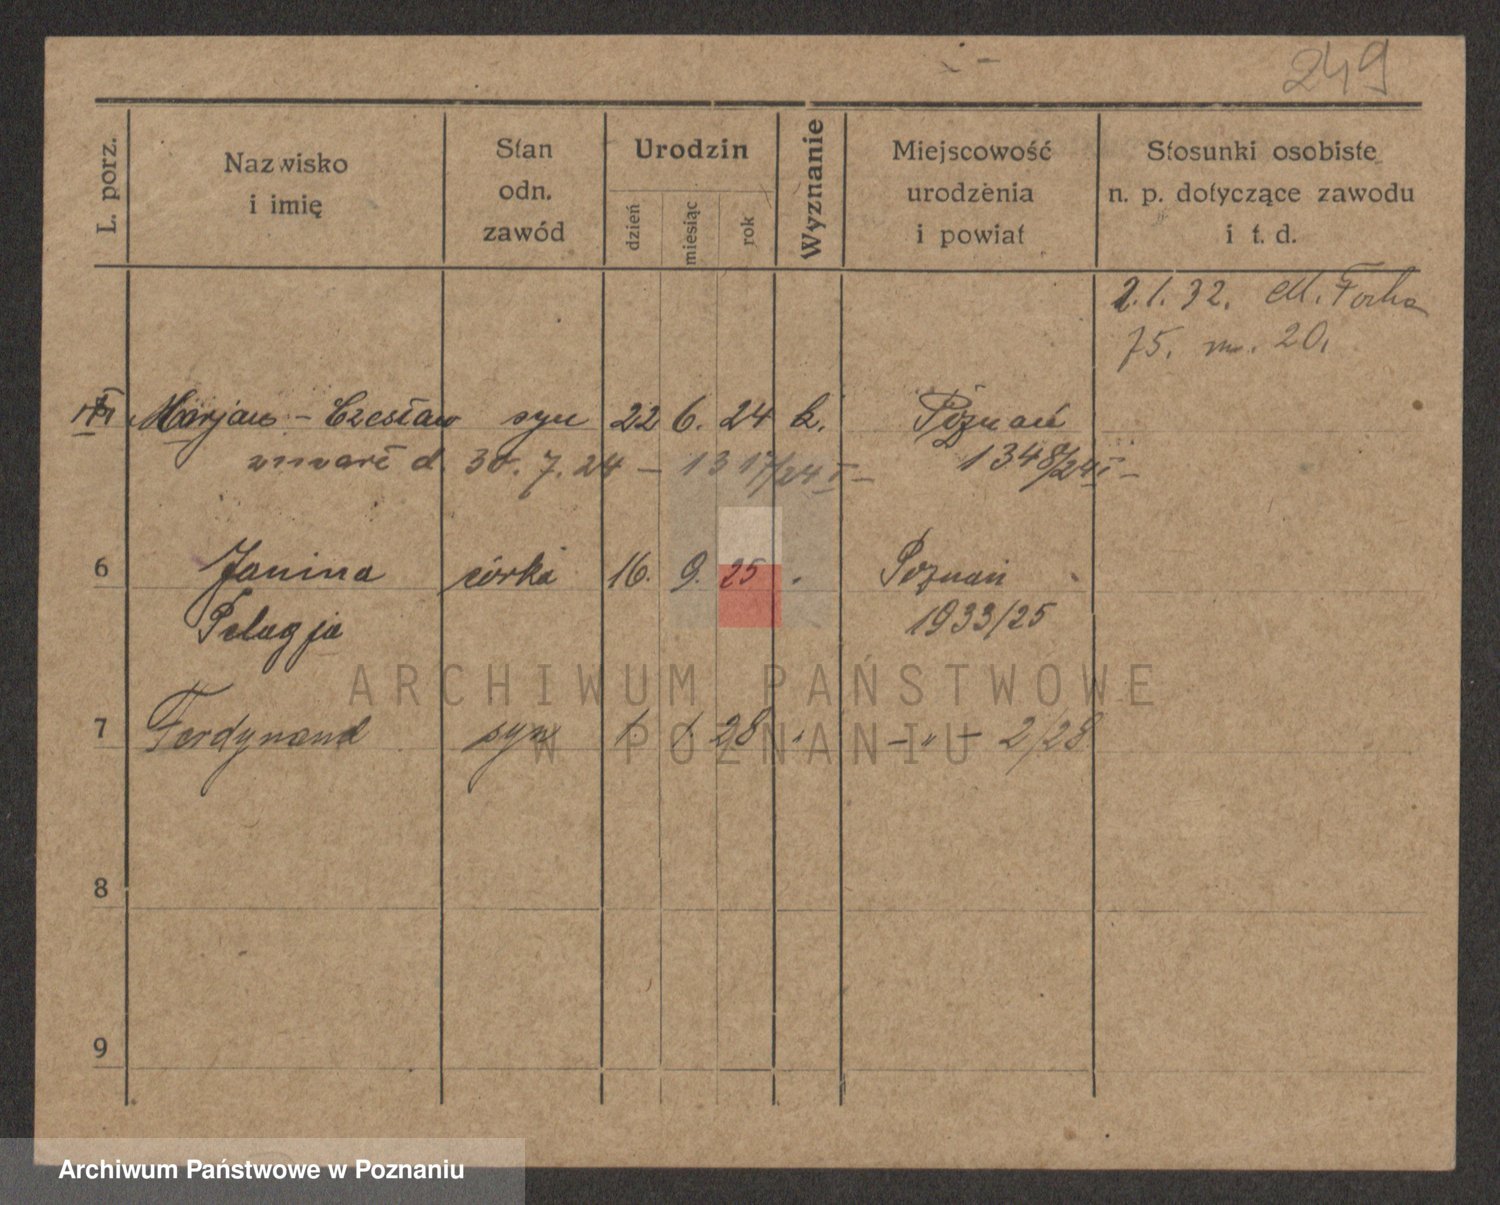 249
L. porz.
Nazwisko
i imię
Stan
odn.
zawód
Urodzin
dzień
miesiąc
rok
Wyznanie
Miejscowość
urodzenia
i powiat
Stosunki osobiste
n. p. dotyczące zawodu
i t. d.
2.1.32. M. Focha
75. m. 20.
Marjan - Czesław syn 22 6. 24 k. Poznań
zmarł d. 30. 7. 24 - 1317/24 I - 1348/24 II -
6 Janina córka 16. 9. 25 . Poznań
Pelagja 1933/25
ARCHIWUM PAŃSTWOWE
7 Ferdynand syn 1. 1. 28 " - " - 2/28
W POZNANIU
8
9
Archiwum Państwowe w Poznaniu